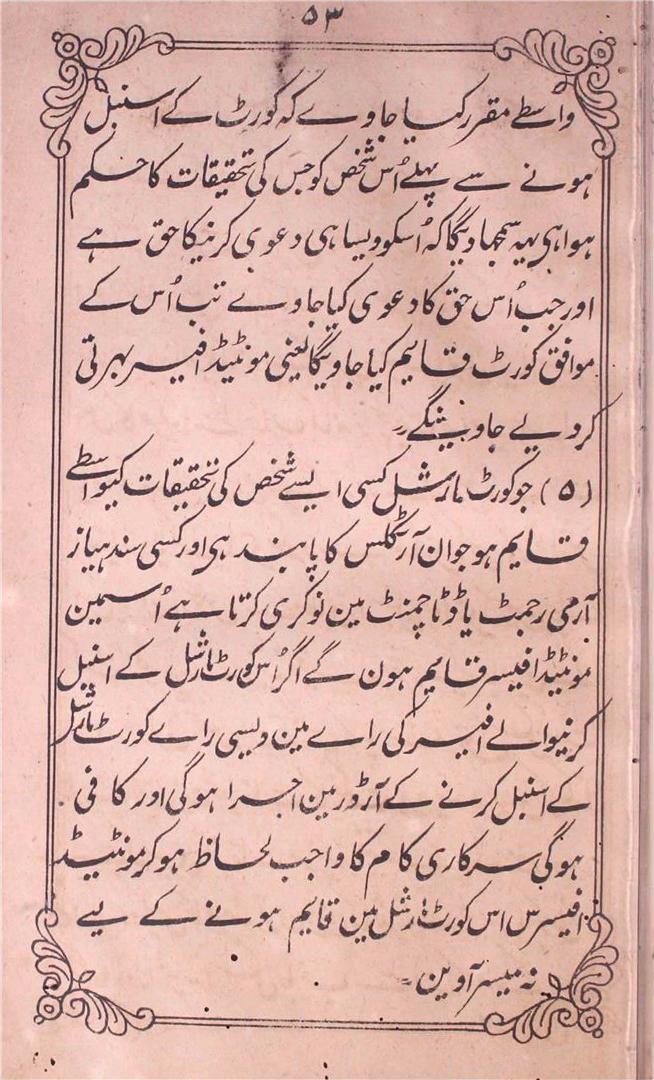 ۵۳
واسطے مقرر کیا جاوے کہ کورٹ کے اسنبل
ہونے سے پہلے اُس شخص کو جس کی تحقیقات کا حکم
ہوا ہی یہہ سمجھا دیگا کہ اُسکو ویسا ہی دعوی کرنیکا حق ہے
اور جب اُس حق کا دعوی کیا جاوے تب اُس کے
موافق کورٹ قایم کیا جاویگا یعنی مونٹیڈ افیسر بہرتی
کر دیے جاوینگے ۔
(۵) جو کورٹ مارشل کسی ایسے شخص کی تحقیقات کیواسطے
قایم ہو جو ان آرٹکلس کا پابند ہی اور کسی سندہیاز
آرمی رجمٹ یا ڈٹاچمنٹ مین نوکری کرتا ہے اُسمین
مونٹیڈ افیسر قایم ہون گے اگر اُس کورٹ مارشل کے اسنبل
کرنیوالے افیسر کی راے مین ویسی راے کورٹ مارشل
کے اسنبل کرنے کے آرڈور مین اجرا ہوگی اور کافی
ہوگی سرکاری کام کا واجب لحاظ ہوکر مونٹیڈ
افیسرس اس کورٹ مارشل مین قایم ہونے کے لیے
نہ میسر آوین ۔